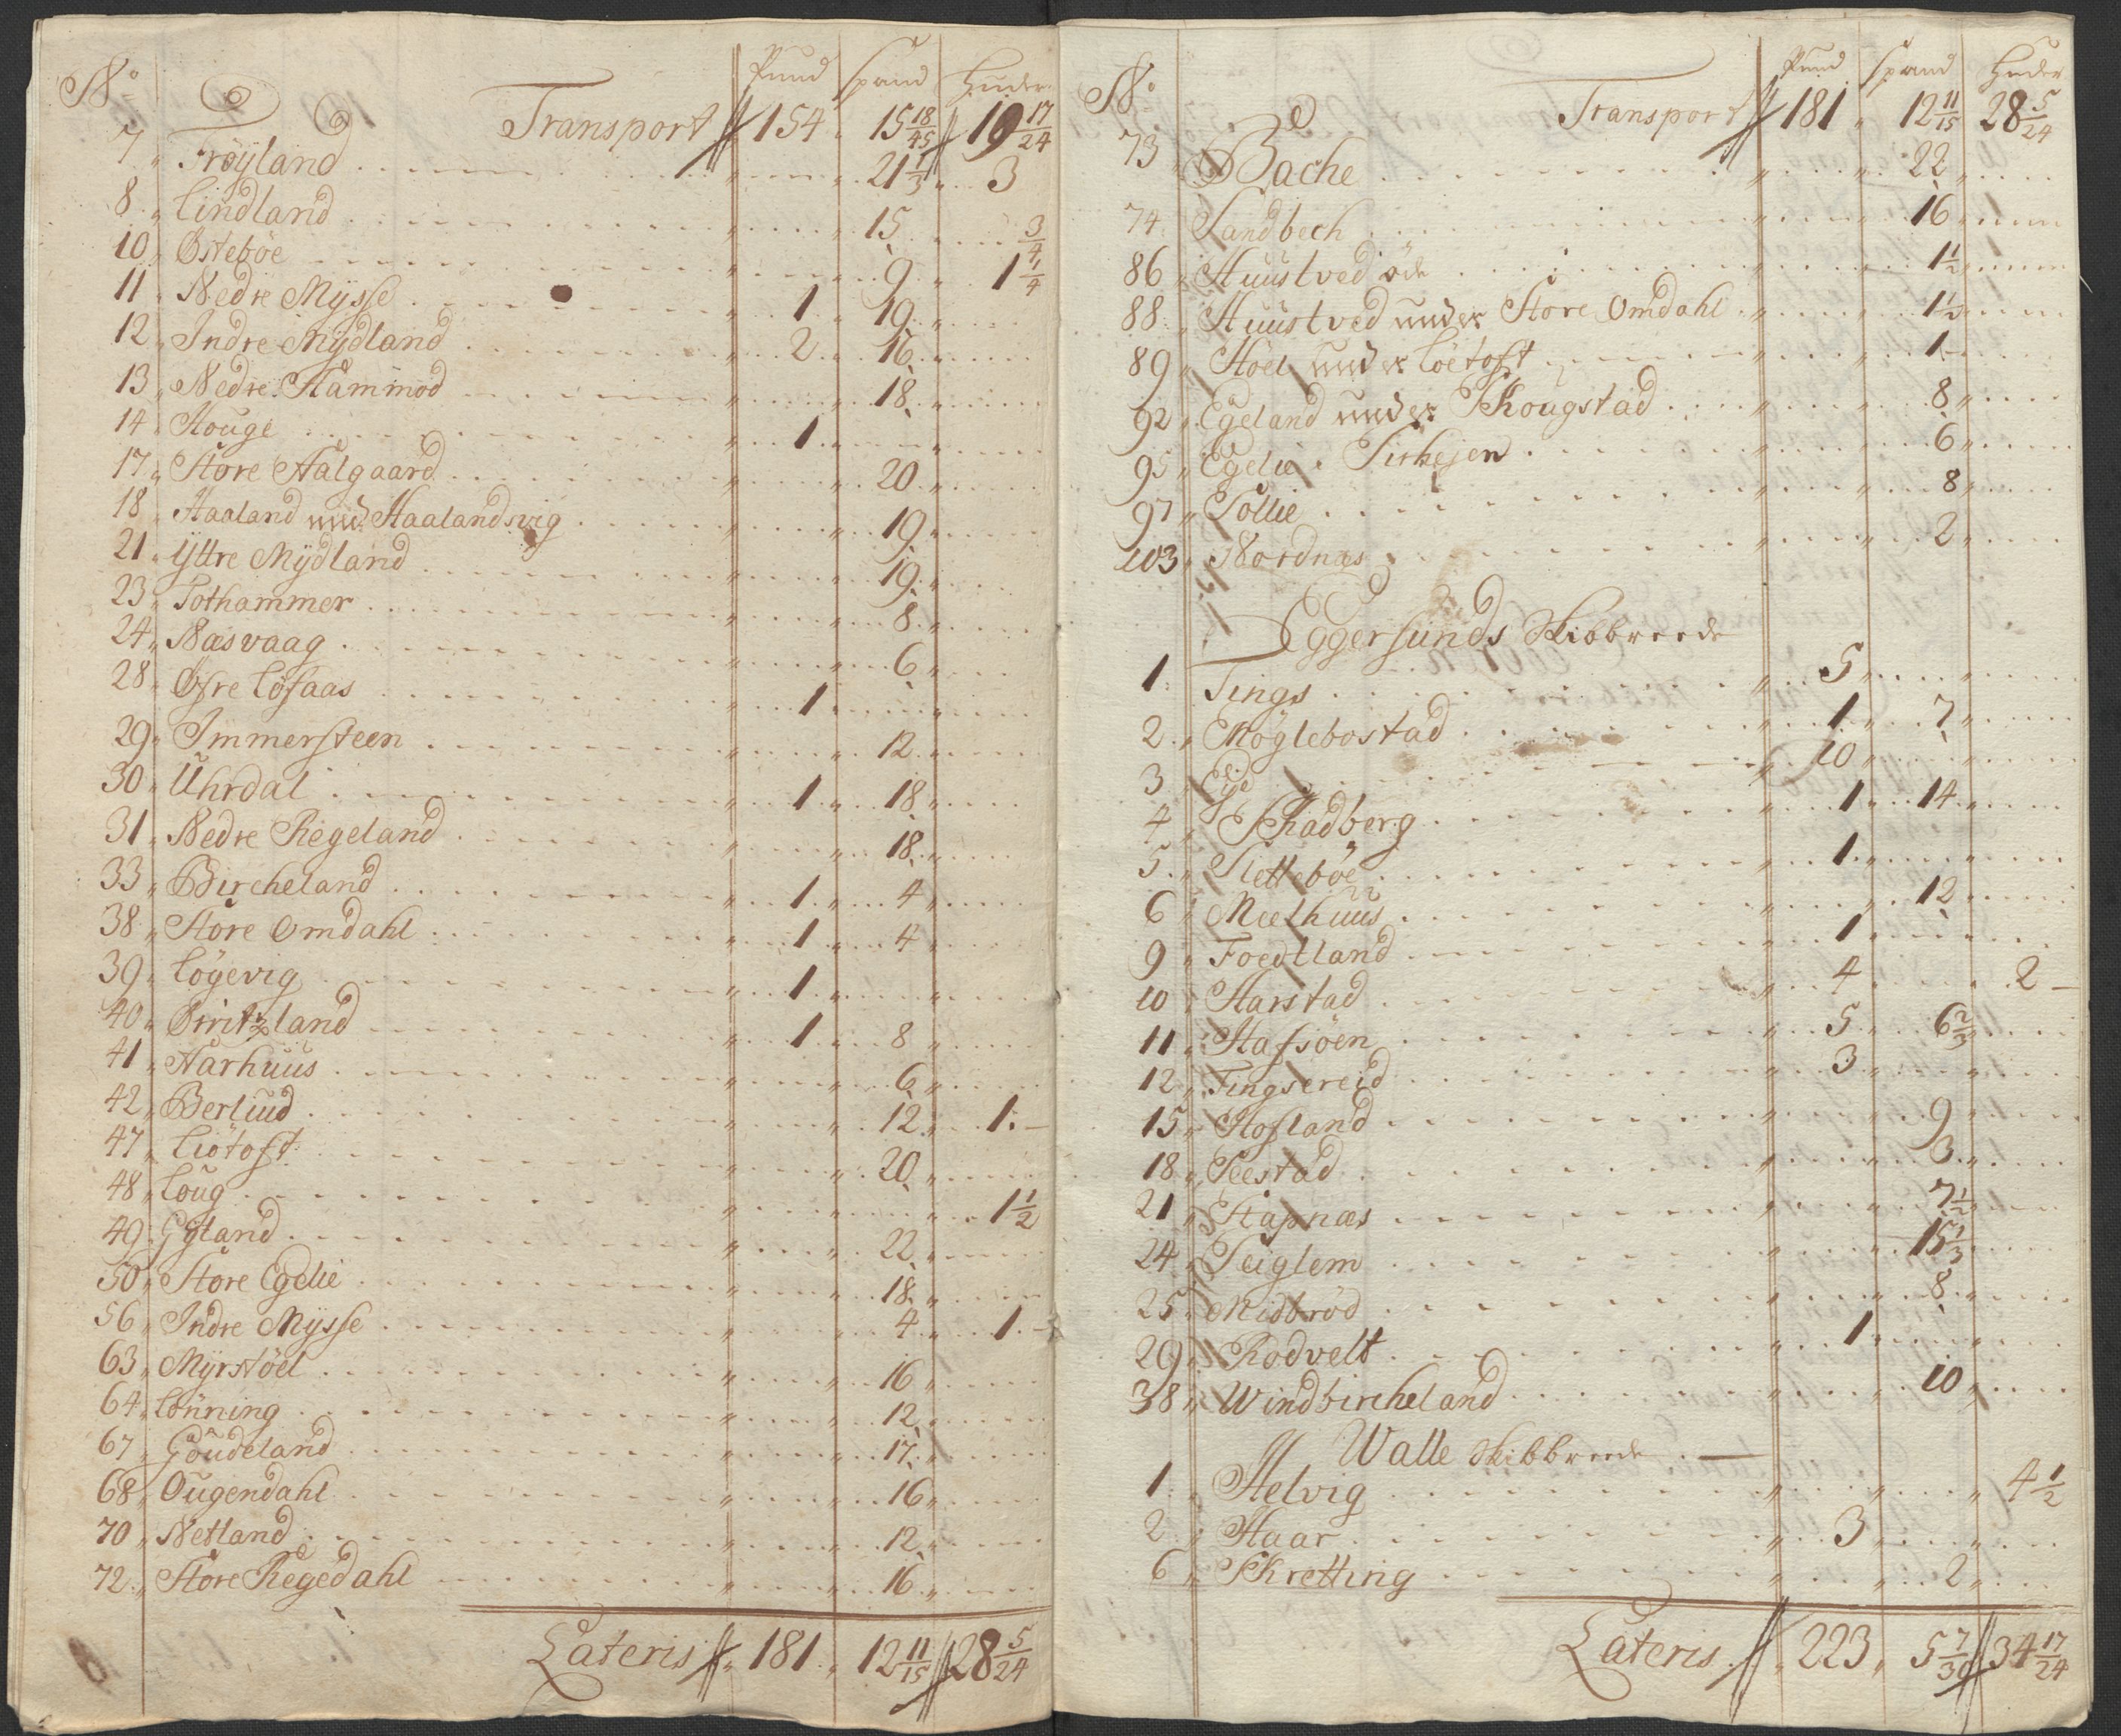 No Pund Spand Huder
Transport 154 15 18/45 19 17/24
7 Frøyland 21 1/3 3
8 Lindland 15 3/4
10 Østebøe 9 1 1/4
11 Nedre Mysse 1 19
12 Indre Mydland 2 16
13 Nedre Hammod 18
14 Houge 1
17 Store Aalgaard 20
18 Haaland und Haalandsvig 19
21 Yttre Mydland 19
23 Tothammer 8
24 Næsvaag 6
28 Øfre Løfaas 1
29 Immersteen 12
30 Uhrdal 1 18
31 Nedre Regeland 18
33 Bircheland 1 4
38 Store Omdahl 1 4
39 Løgevig 1
40 Ørritzland 1 8
41 Aarhuus 6
42 Berliud 12 1
47 Liøtoft 20
48 Loug 1 1/2
49 Gyland 22
50 Store Egelie 18
56 Indre Mysse 4 1
63 Myrstøel 16
64 Lønning 12
67 Goudeland 17
68 Ougendahl 16
70 Netland 12
72 Store Regedahl 16
Lateris 181 12 11/15 28 5/24
No Pund Spand Huder
Transport 181 12 11/15 28 5/24
73 Bache 22
74 Sandbech 16
86 Huustved øde 1 1/2
88 Huustved under Store Omdahl 1 1/2
89 Høel under Løetoft 1
92 Egeland under Skougstad 8
95 Egelie Sirhejen 6
97 Sollie 8
103 Nordnæs 2
Eggersunds Skibbreede
1 Tings 5
2 Møglebostad 1 7
3 Eye 10
4 Skadberg 1 14
5 Slettebøe 1
6 Meelhuus 12
9 Foedlland 1
10 Harstad 4 2
11 Hafsøen 5 6 2/3
12 Tingsereid 3
15 Hofland 9
18 Seestad 3
21 Stapnæs 7 1/2
24 Seiglem 15 1/3
25 Midbrød 8
29 Rodvelt 1
38 Windbircheland 10
Walle Skibbreede
1 Helvig 4 1/2
2 Haar 3
6 Skretting 2
Lateris 223 5 7/30 34 17/24